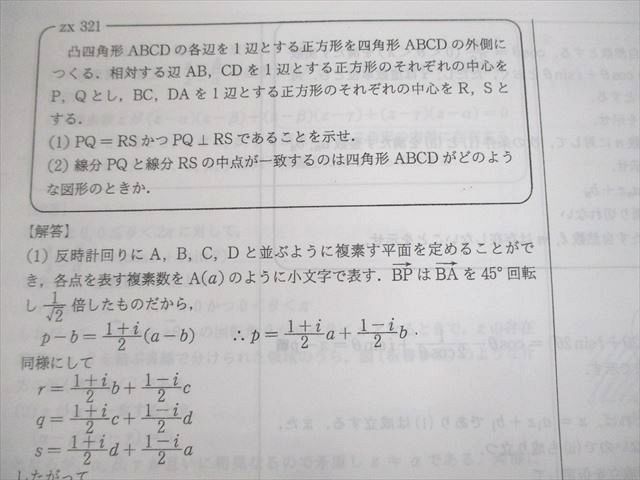 zx 321
凸四角形 ABCD の各辺を 1 辺とする正方形を四角形 ABCD の外側に
つくる. 相対する辺 AB, CD を 1 辺とする正方形のそれぞれの中心を
P, Q とし, BC, DA を 1 辺とする正方形のそれぞれの中心を R, S と
する.
(1) PQ = RS かつ PQ ⊥ RS であることを示せ.
(2) 線分 PQ と線分 RS の中点が一致するのは四角形 ABCD がどのよう
な図形のときか.
【解答】
(1) 反時計回りに A, B, C, D と並ぶように複素す平面を定めることがで
き, 各点を表す複素数を A(a) のように小文字で表す. \overrightarrow{BP} は \overrightarrow{BA} を 45° 回転
し \frac{1}{\sqrt{2}} 倍したものだから,
p - b = \frac{1+i}{2}(a - b) ∴ p = \frac{1+i}{2}a + \frac{1-i}{2}b.
同様にして
r = \frac{1+i}{2}b + \frac{1-i}{2}c
q = \frac{1+i}{2}c + \frac{1-i}{2}d
s = \frac{1+i}{2}d + \frac{1-i}{2}a
したがって